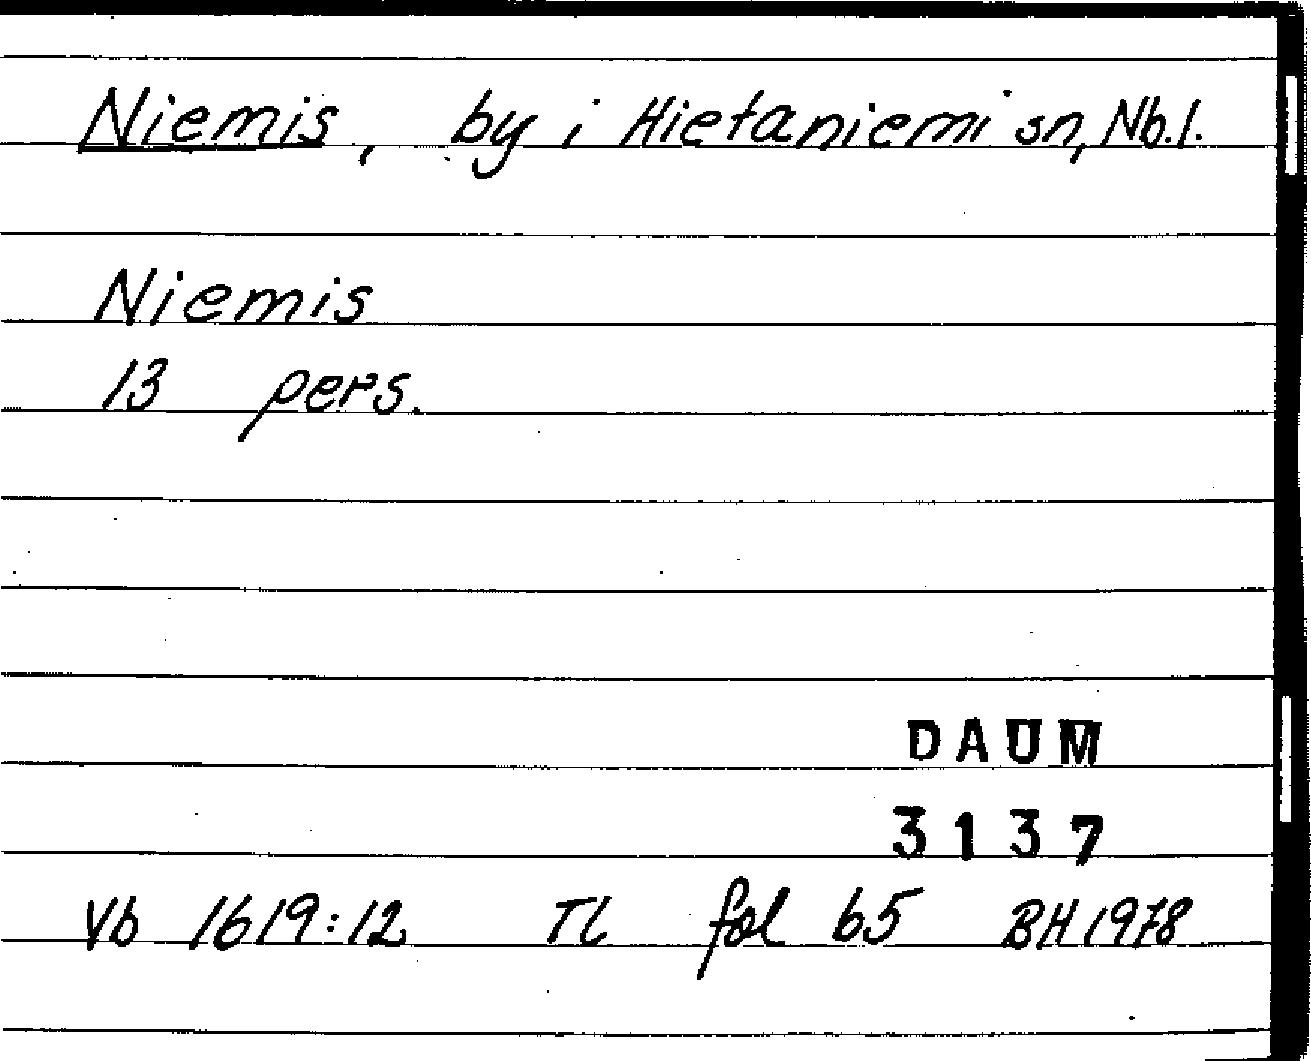 Niemis, by i Hietaniemi sn, Nb.l.
Niemis
13 pers.
DAUM
3137
Vb 1619:12 TL fol 65 BH 1978